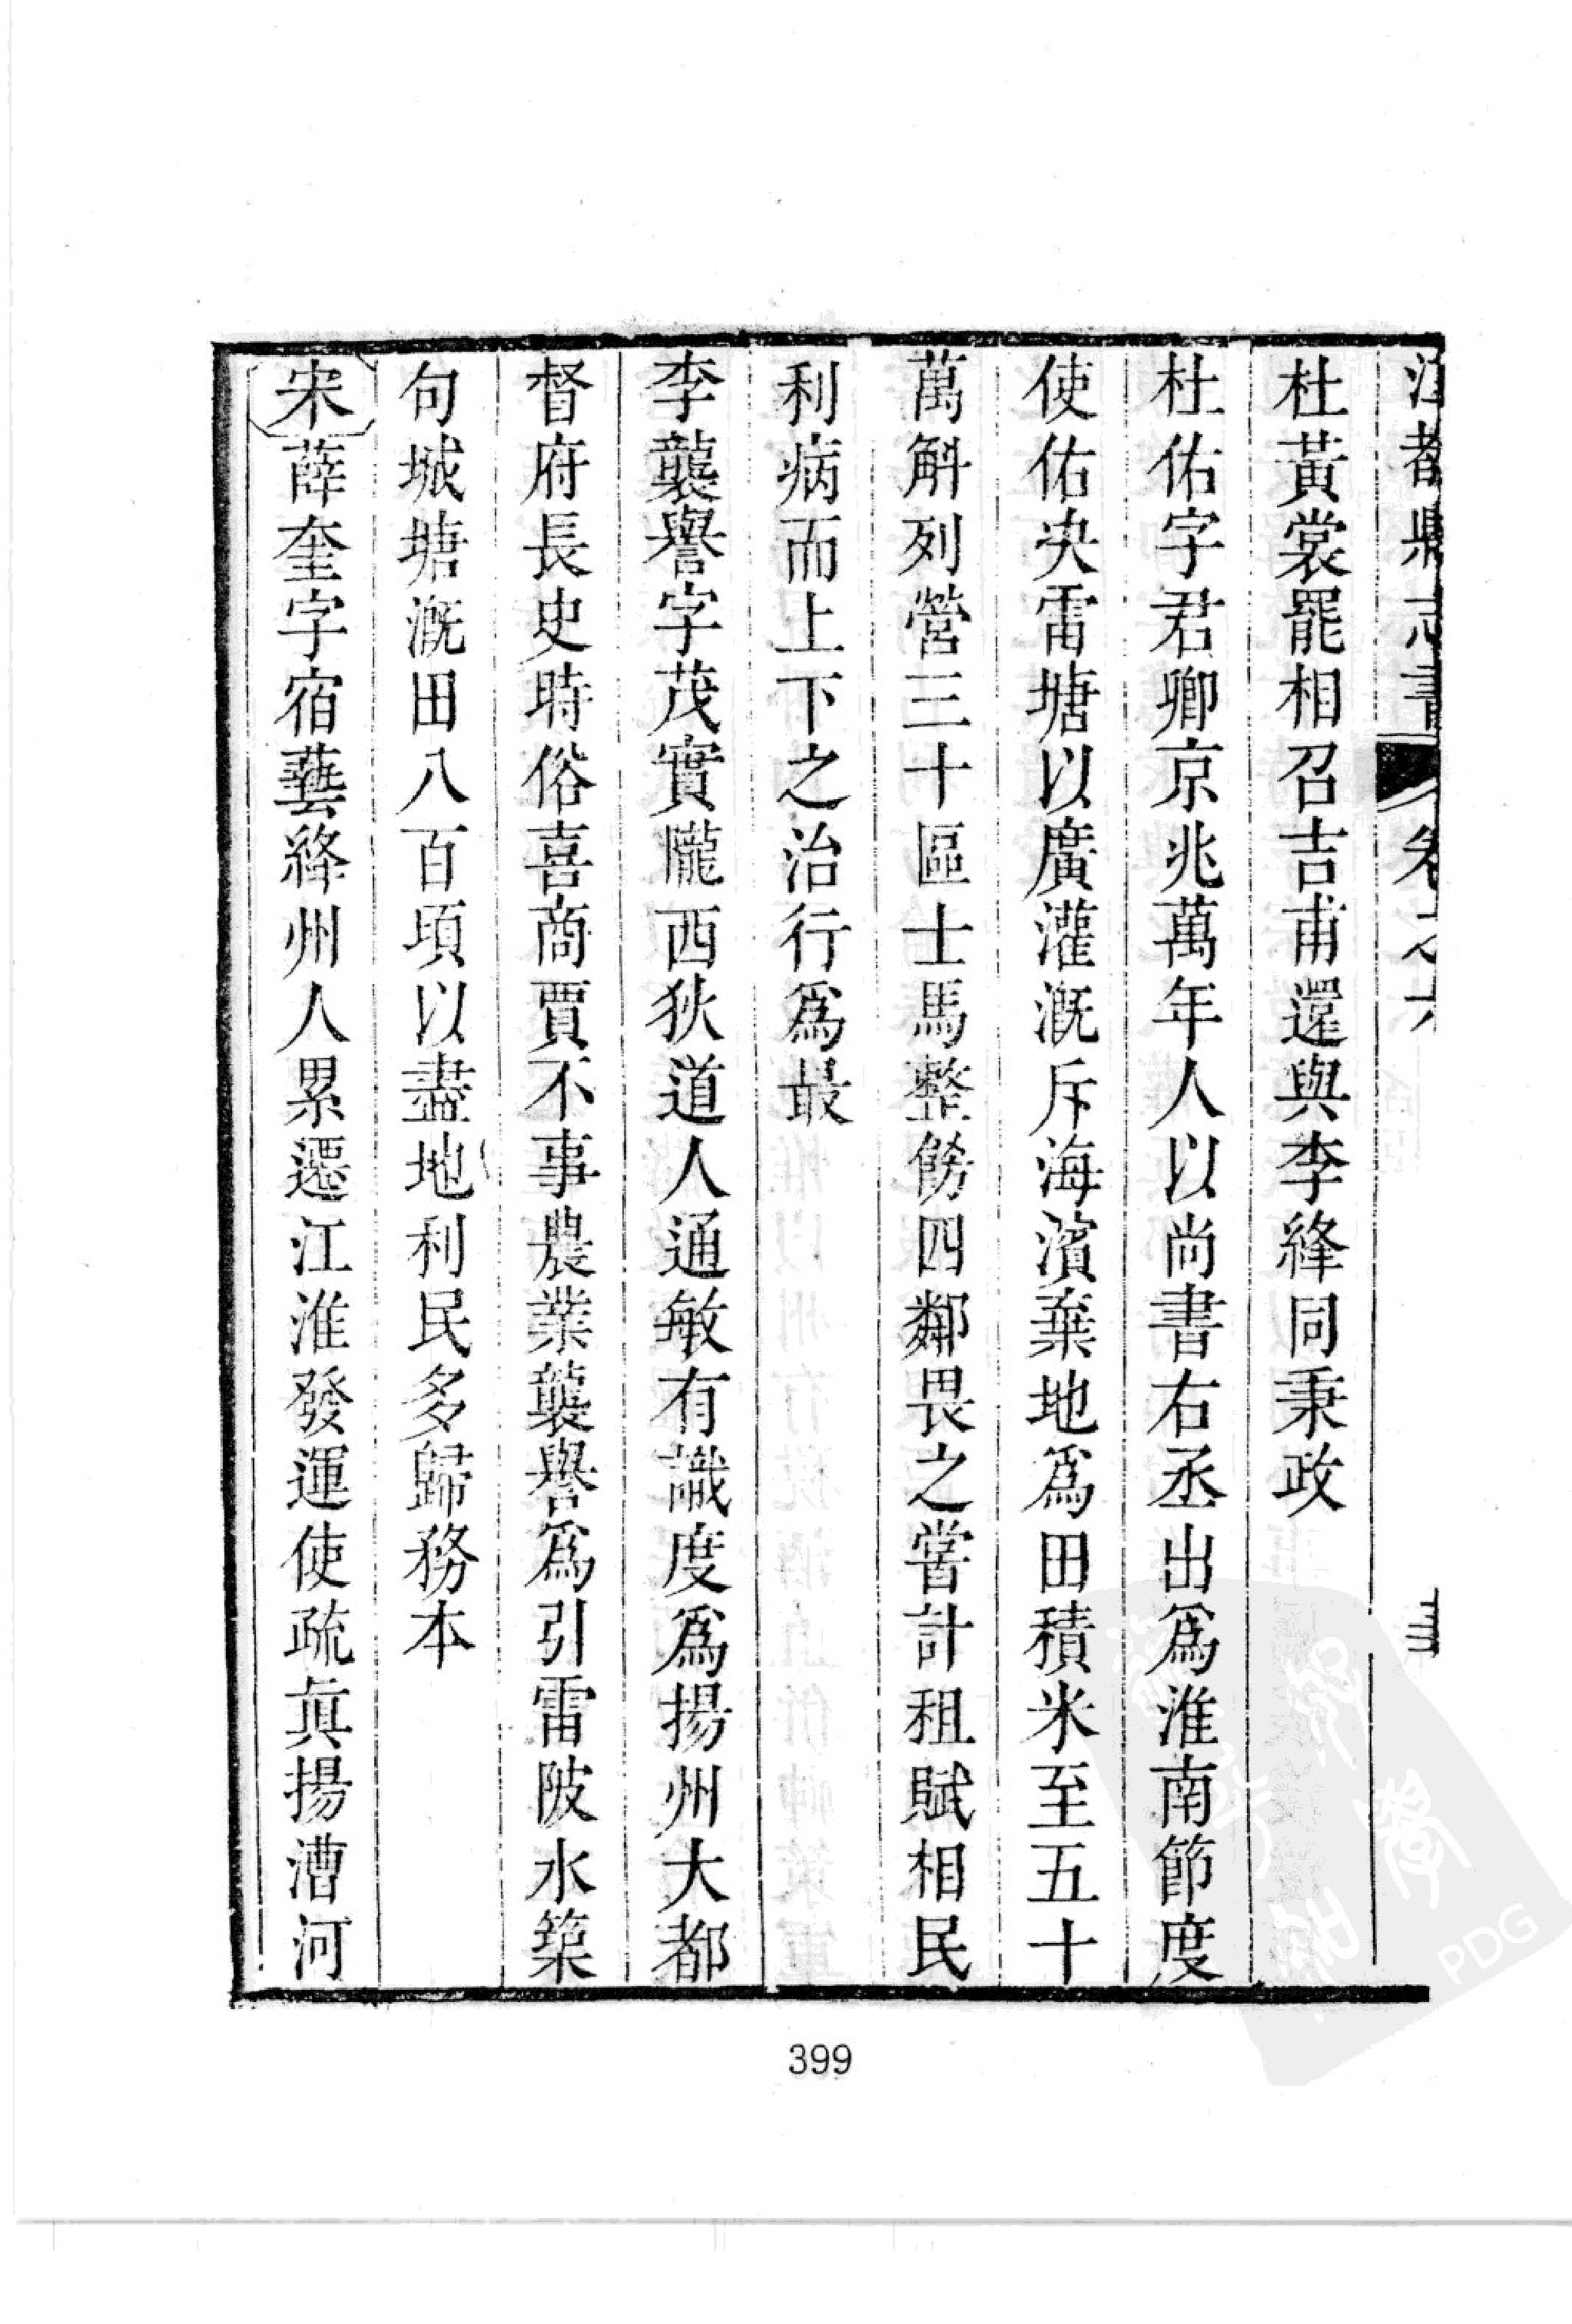 江都縣志書 卷之六
杜黃裳罷相召吉甫還與李絳同秉政
杜佑字君卿京兆萬年人以尚書右丞出爲淮南節度
使佑决雷塘以廣灌漑斥海濱棄地爲田積米至五十
萬斛列營三十區士馬整飭四鄰畏之嘗計租賦相民
利病而上下之治行爲最
李襲譽字茂實隴西狄道人通敏有識度爲揚州大都
督府長史時俗喜商賈不事農業襲譽爲引雷陂水築
句城塘漑田八百頃以盡地利民多歸務本
宋薛奎字宿藝絳州人累遷江淮發運使疏眞揚漕河
399
PDG